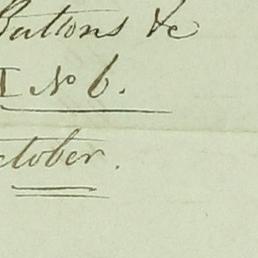 Buttons &c
I No 6.
ctober.